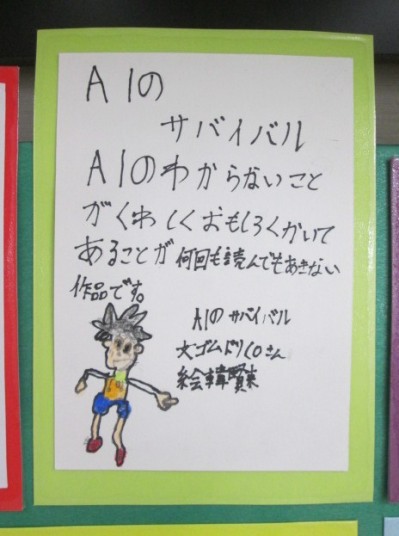 AIの
サバイバル
AIのわからないこと
がくわしくおもしろくかいて
あることが何回も読んでもあきない
作品です。
AIのサバイバル
文ゴムドリCOさん
絵韓賢東